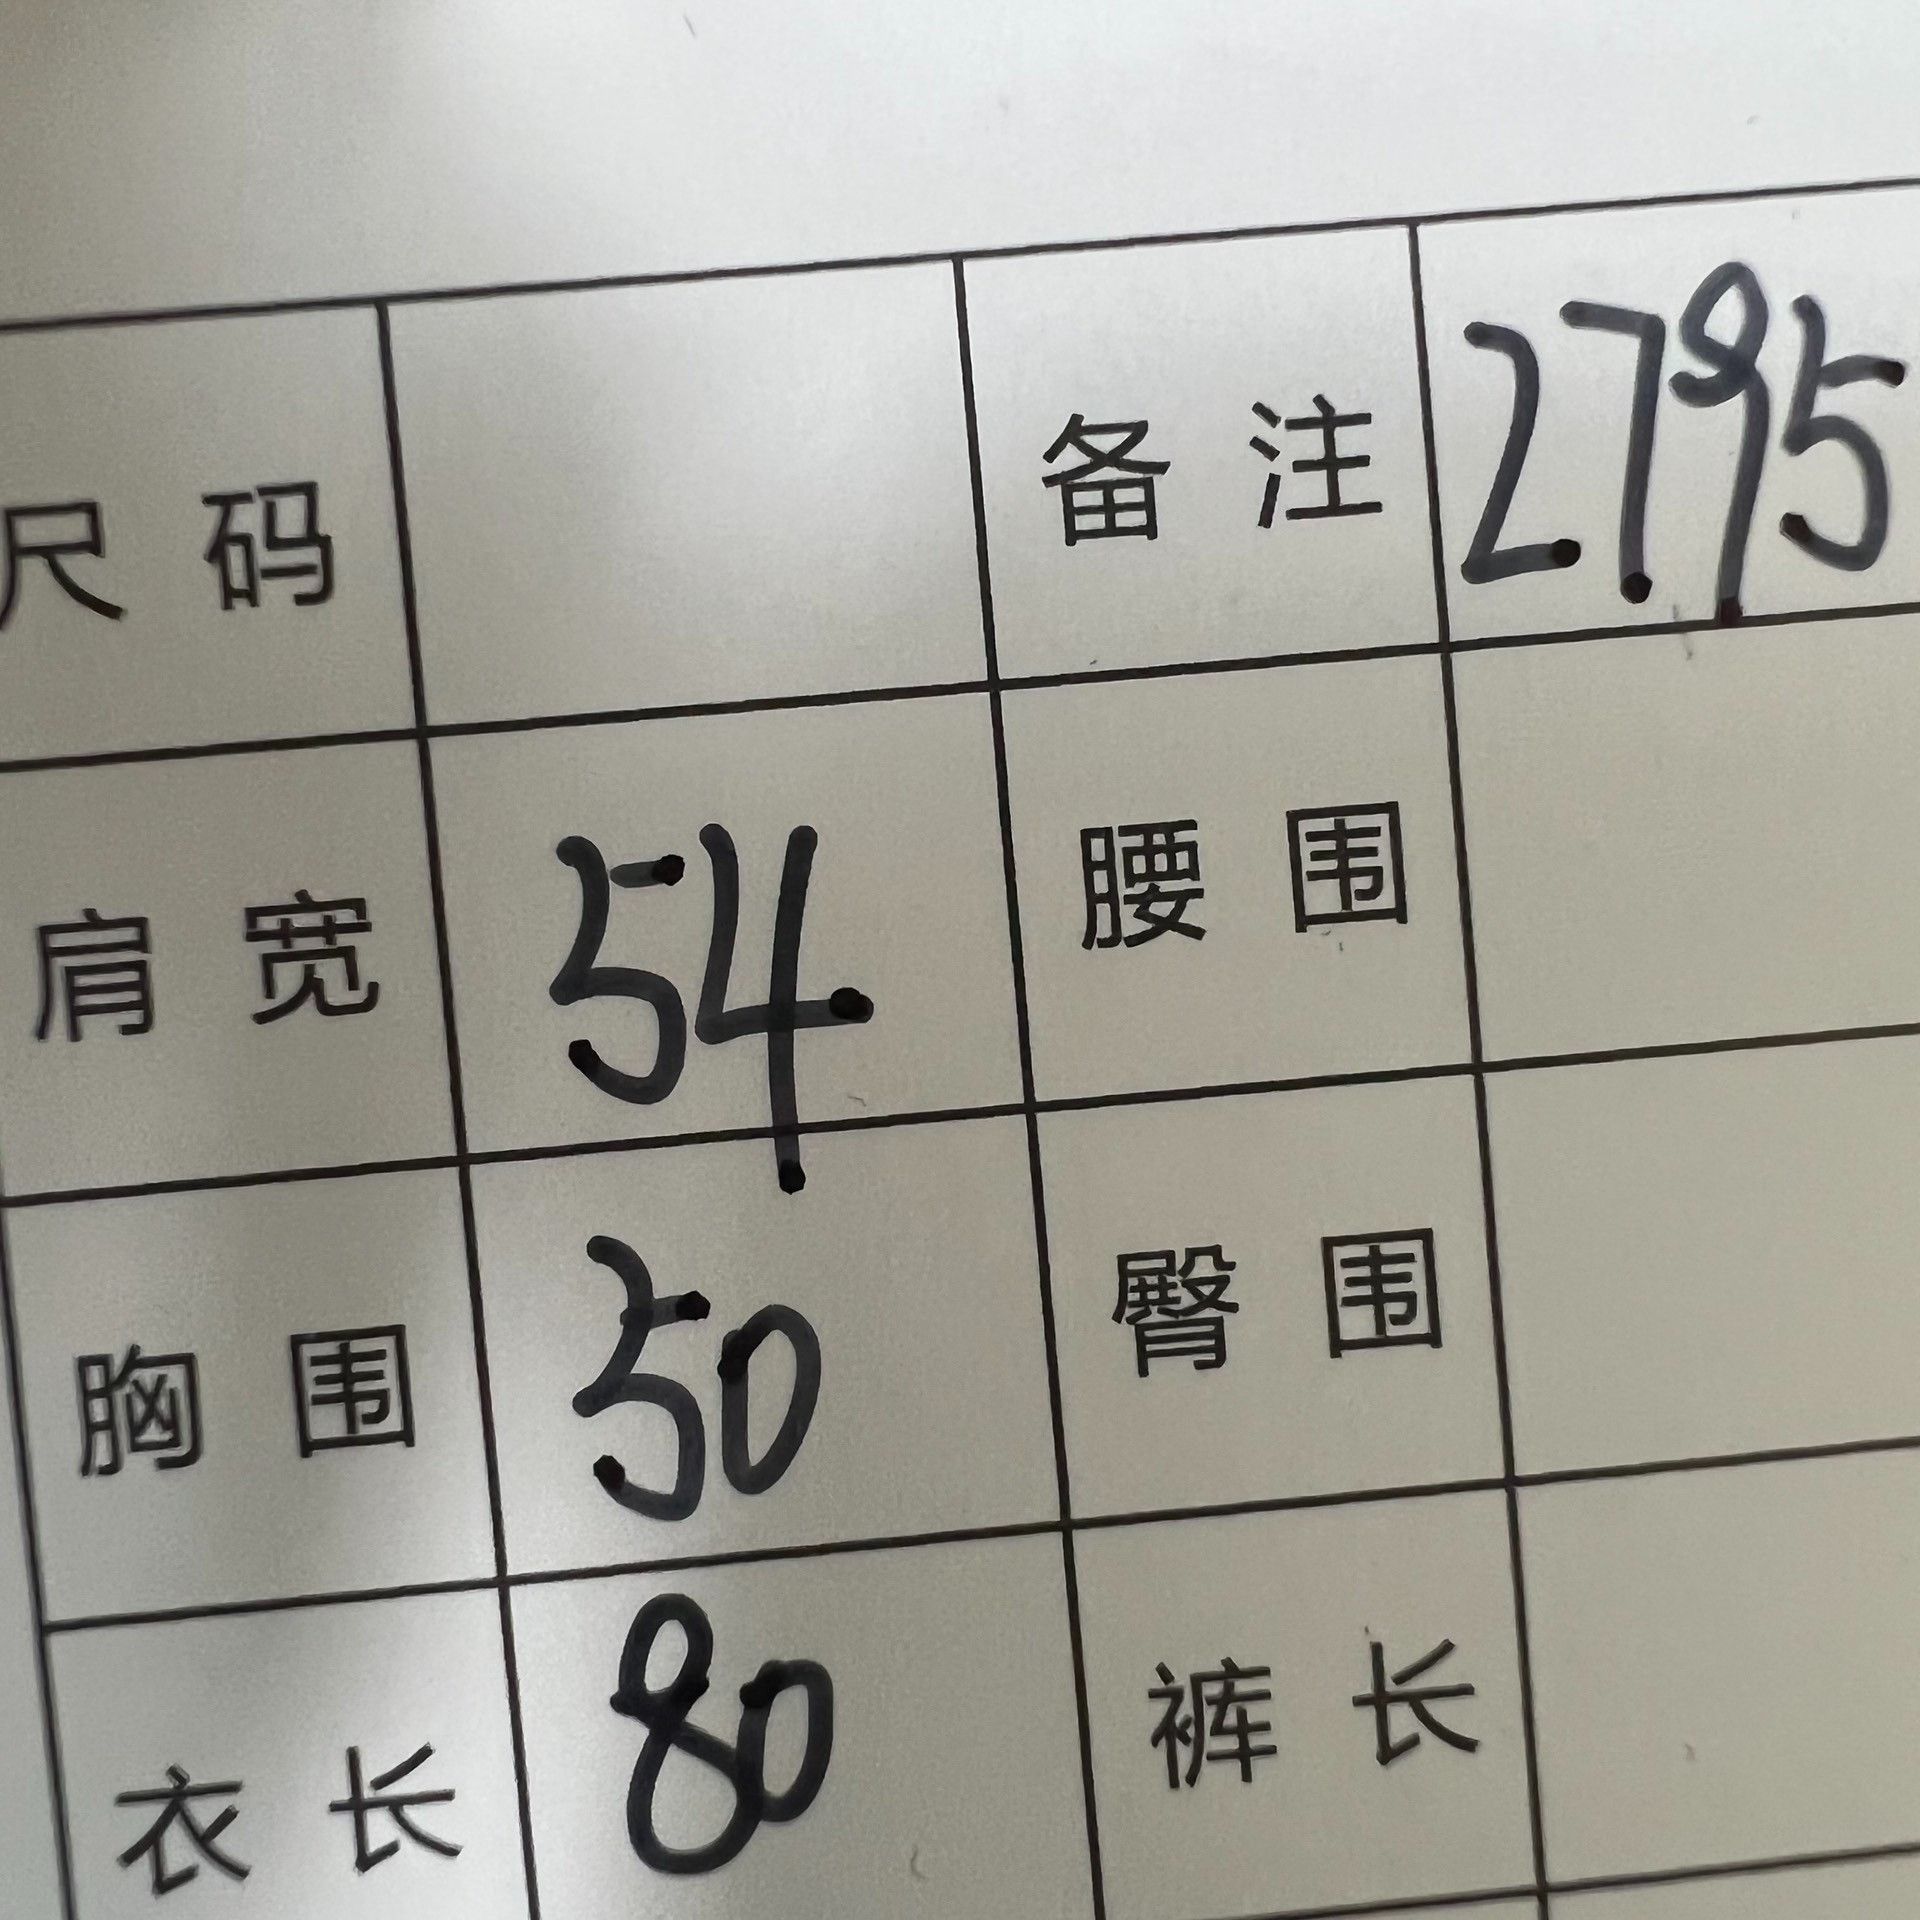 尺 码 备 注 2795
肩 宽 54 腰 围
胸 围 50 臀 围
衣 长 80 裤 长